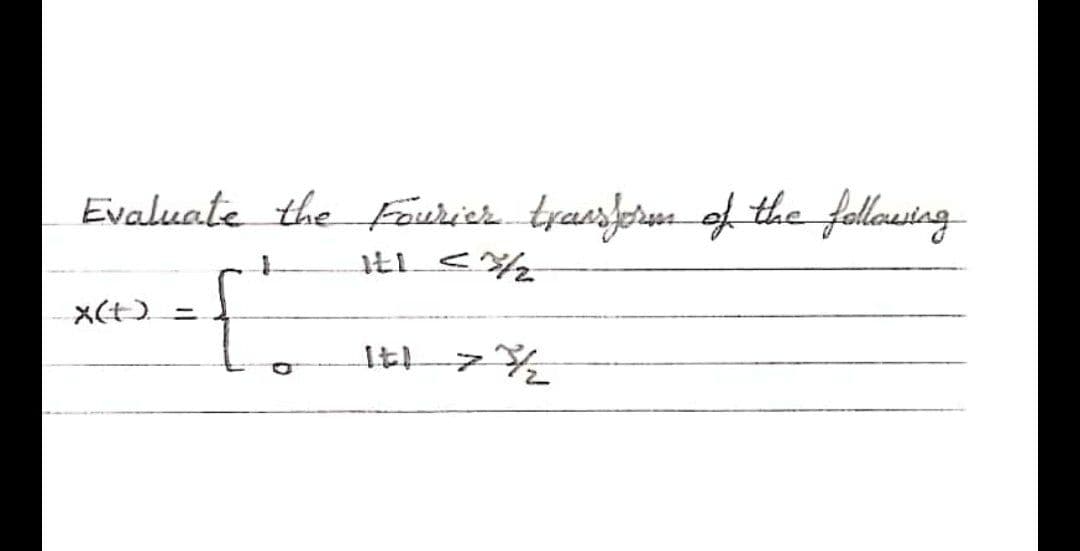 Evaluate the Fourier transform of the following
1 |t| <
x(t) = {
0 |t| >